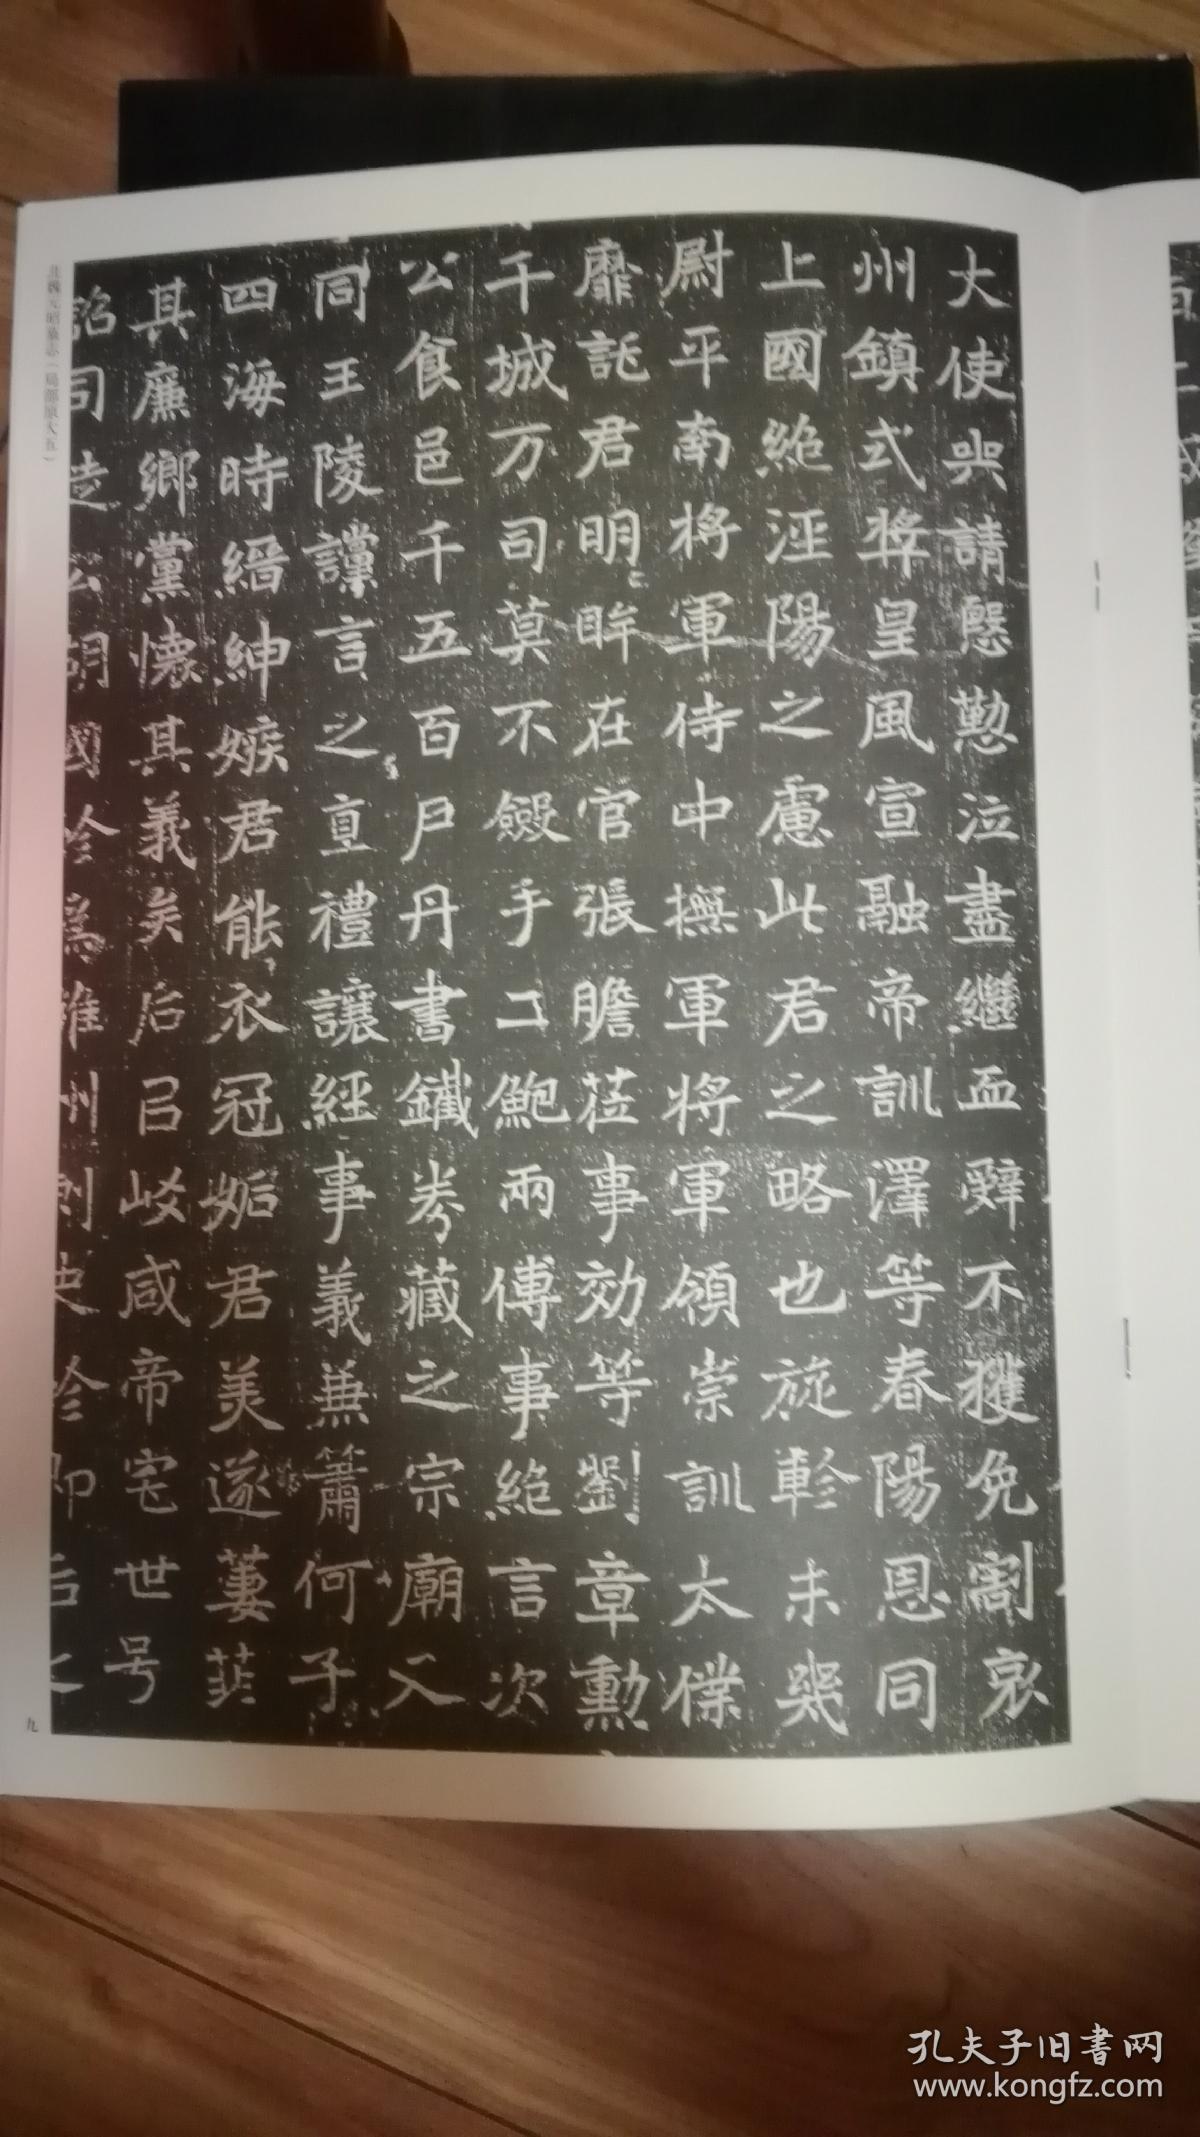 大使與請慇懃泣盡繼血辭不獲免割哀
州鎮式獎皇風宣融帝訓澤等春陽恩同
上國絶涇陽之慮此君之略也旋軫未幾
尉平南將軍侍中撫軍將軍領崇訓太僕
靡託君明眸在官張膽莅事効等劉章勳
千城万司莫不斂手二鮑兩傅事絶言次
公食邑千五百戶丹書鐵券藏之宗廟又
同王陵讜言之直禮讓經事義無簫何子
四海時縉紳嫉君能衣冠妬君美遂萋菲
其廉鄉黨懷其義矣后呂岐咸帝宅世号
詔司造公胡國珍為雍州刺史珍即后之
北魏元昭墓志（局部原大五）
九
孔夫子旧书网
www.kongfz.com